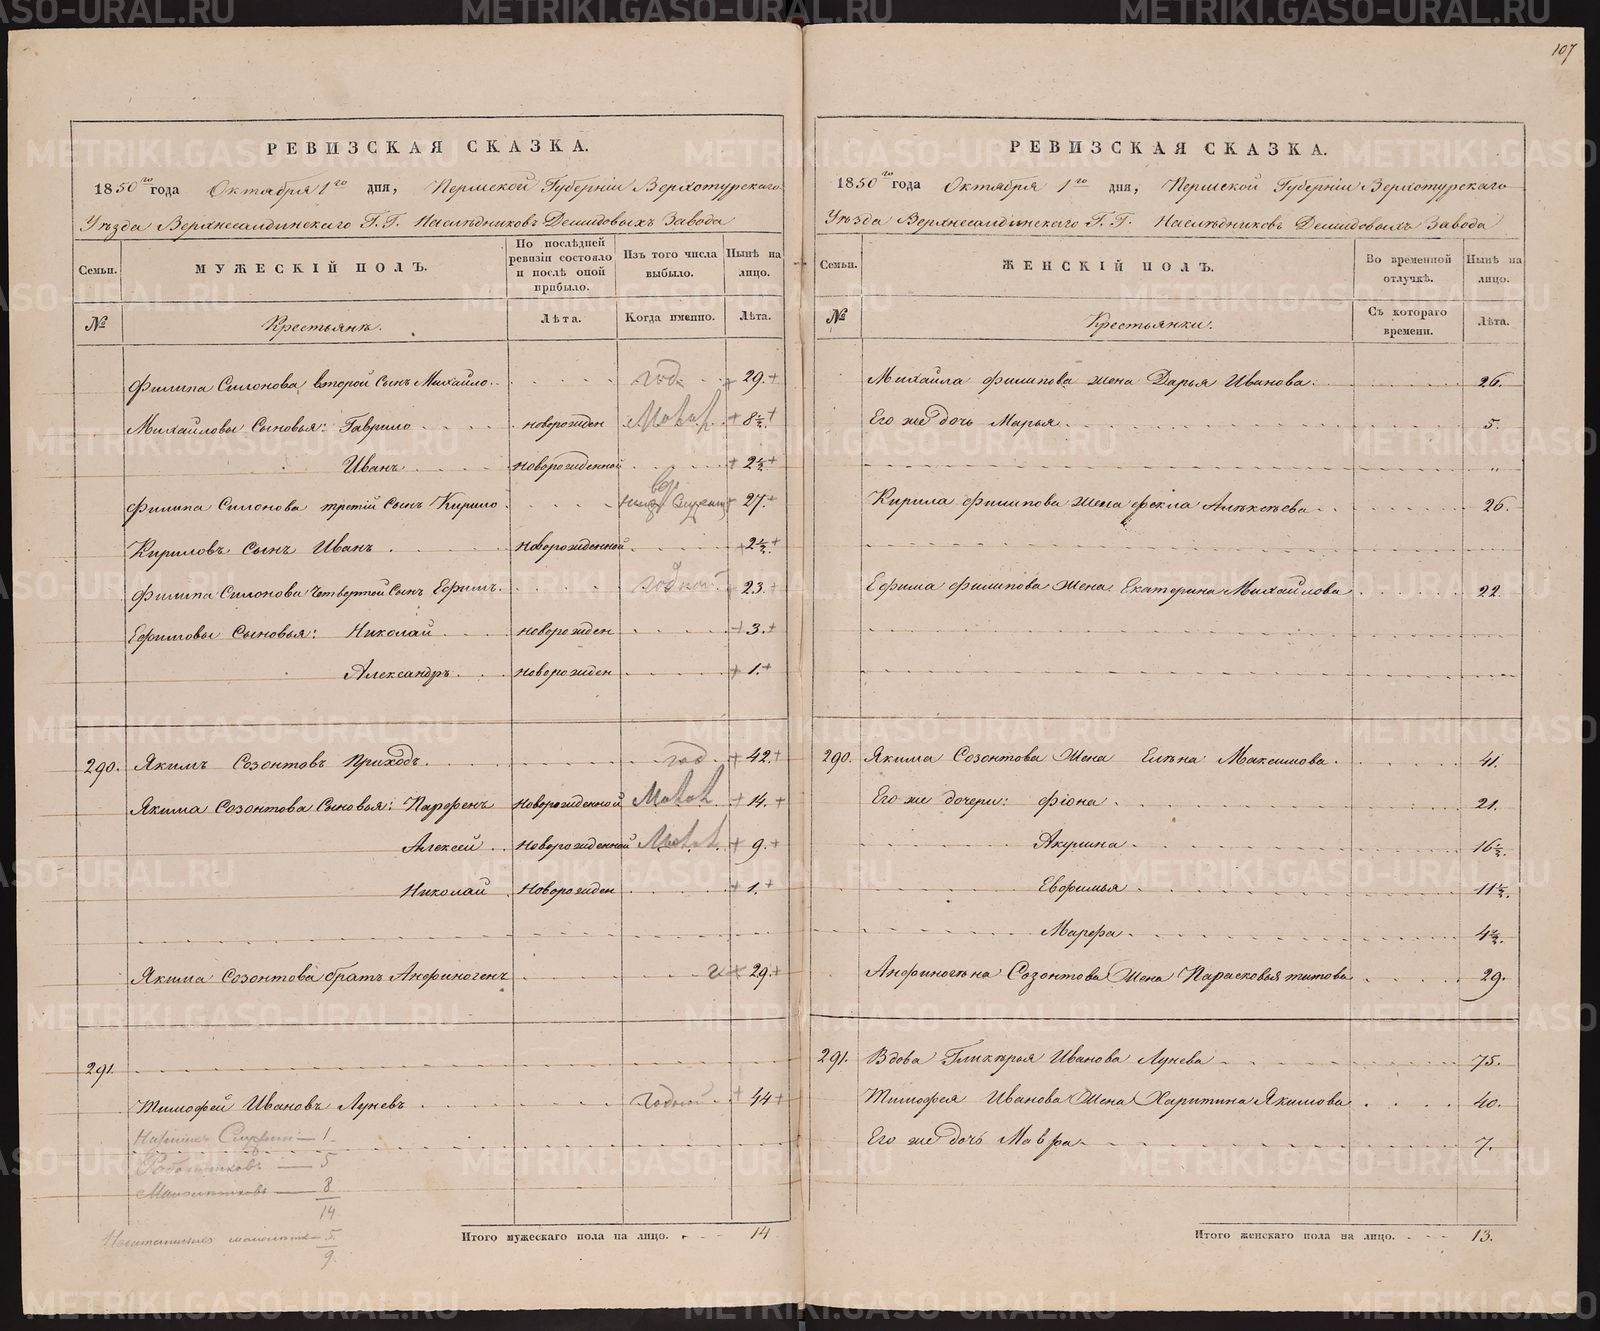 107
РЕВИЗСКАЯ СКАЗКА.
1850го года Октября 1го дня, Пермской Губерніи Верхотурскаго
Уѣзда Верхнесалдинскаго Г.Г. Наслѣдниковъ Демидовыхъ Завода
Семьи. МУЖЕСКІЙ ПОЛЪ. По послѣдней ревизіи состояло и послѣ оной прибыло. Изъ того числа выбыло. Нынѣ на лицо.
№ Крестьянѣ. Лѣта. Когда именно. Лѣта.
Филипа Симонова второй сынъ Михайло. год. 29.
Михайловы Сыновья: Гаврило новорожден 8½
Иванъ новорожденной 2½
Филипа Симонова третій Сынъ Кирило 27.
Кириловъ сынъ Иванъ новорожденной 2½
Филипа Симонова Четвертой Сынъ Ефимъ. годной 23.
Ефимовы Сыновья: Николай новорожден 3.
Александръ новорожден 1.
290. Якимъ Созонтовъ Приходъ. год 42.
Якима Созонтова Сыновья: Парфенъ новорожденной 14.
Алексей новорожденной 9.
Николай новорожден 1.
Якима Созонтова братъ Анфиногенъ 29.
291.
Тимофей Ивановъ Луневъ годной 44
1
Работниковъ — 5
Малолѣтковъ — 8
14
5
9.
Итого мужескаго пола на лицо. 14
РЕВИЗСКАЯ СКАЗКА.
1850го года Октября 1го дня, Пермской Губерніи Верхотурскаго
Уѣзда Верхнесалдинскаго Г.Г. Наслѣдниковъ Демидовыхъ Завода
Семьи. ЖЕНСКІЙ ПОЛЪ. Во временной отлучкѣ. Нынѣ на лицо.
№ Крестьянки. Съ котораго времени. Лѣта.
Михайла Филипова жена Дарья Иванова. 26.
Его же дочь Марья 5.
„
Кирила Филипова жена Фекла Алѣксѣева 26.
Ефима Филипова жена Екатерина Михайлова 22.
290. Якима Созонтова жена Елѣна Максимова. 41.
Его же дочери: Фіона 21.
Акулина 16½.
Евфимья 11½.
Марфа 4½.
Анфиногѣна Созонтова жена Парасковья Титова 29.
291. Вдова Гликѣрья Иванова Лунева 75.
Тимофея Иванова жена Харитина Якимова 40.
Его же дочь Мавра 7.
Итого женскаго пола на лицо. 13.
METRIKI.GASO-URAL.RU